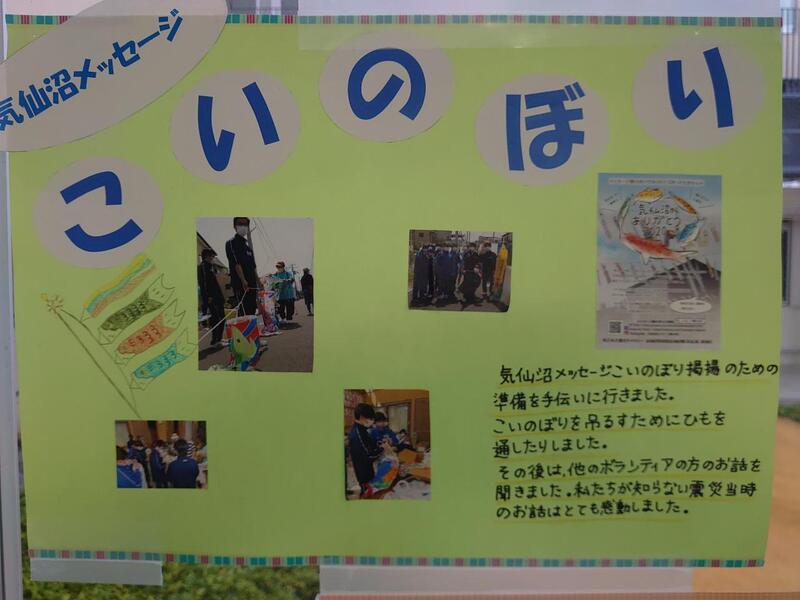 気仙沼メッセージ
こいのぼり
気仙沼から
ありがとう
気仙沼メッセージこいのぼり掲揚のための
準備を手伝いに行きました。
こいのぼりを吊るすためにひもを
通したりしました。
その後は、他のボランティアの方のお話を
聞きました。私たちが知らない震災当時
のお話はとても感動しました。